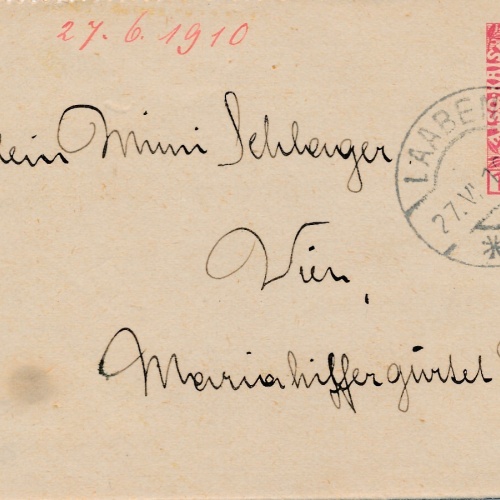 27. 6. 1910
lein Mimi Schlager
Wien,
Mariahilfergürtel
LAABEN
27.VI.